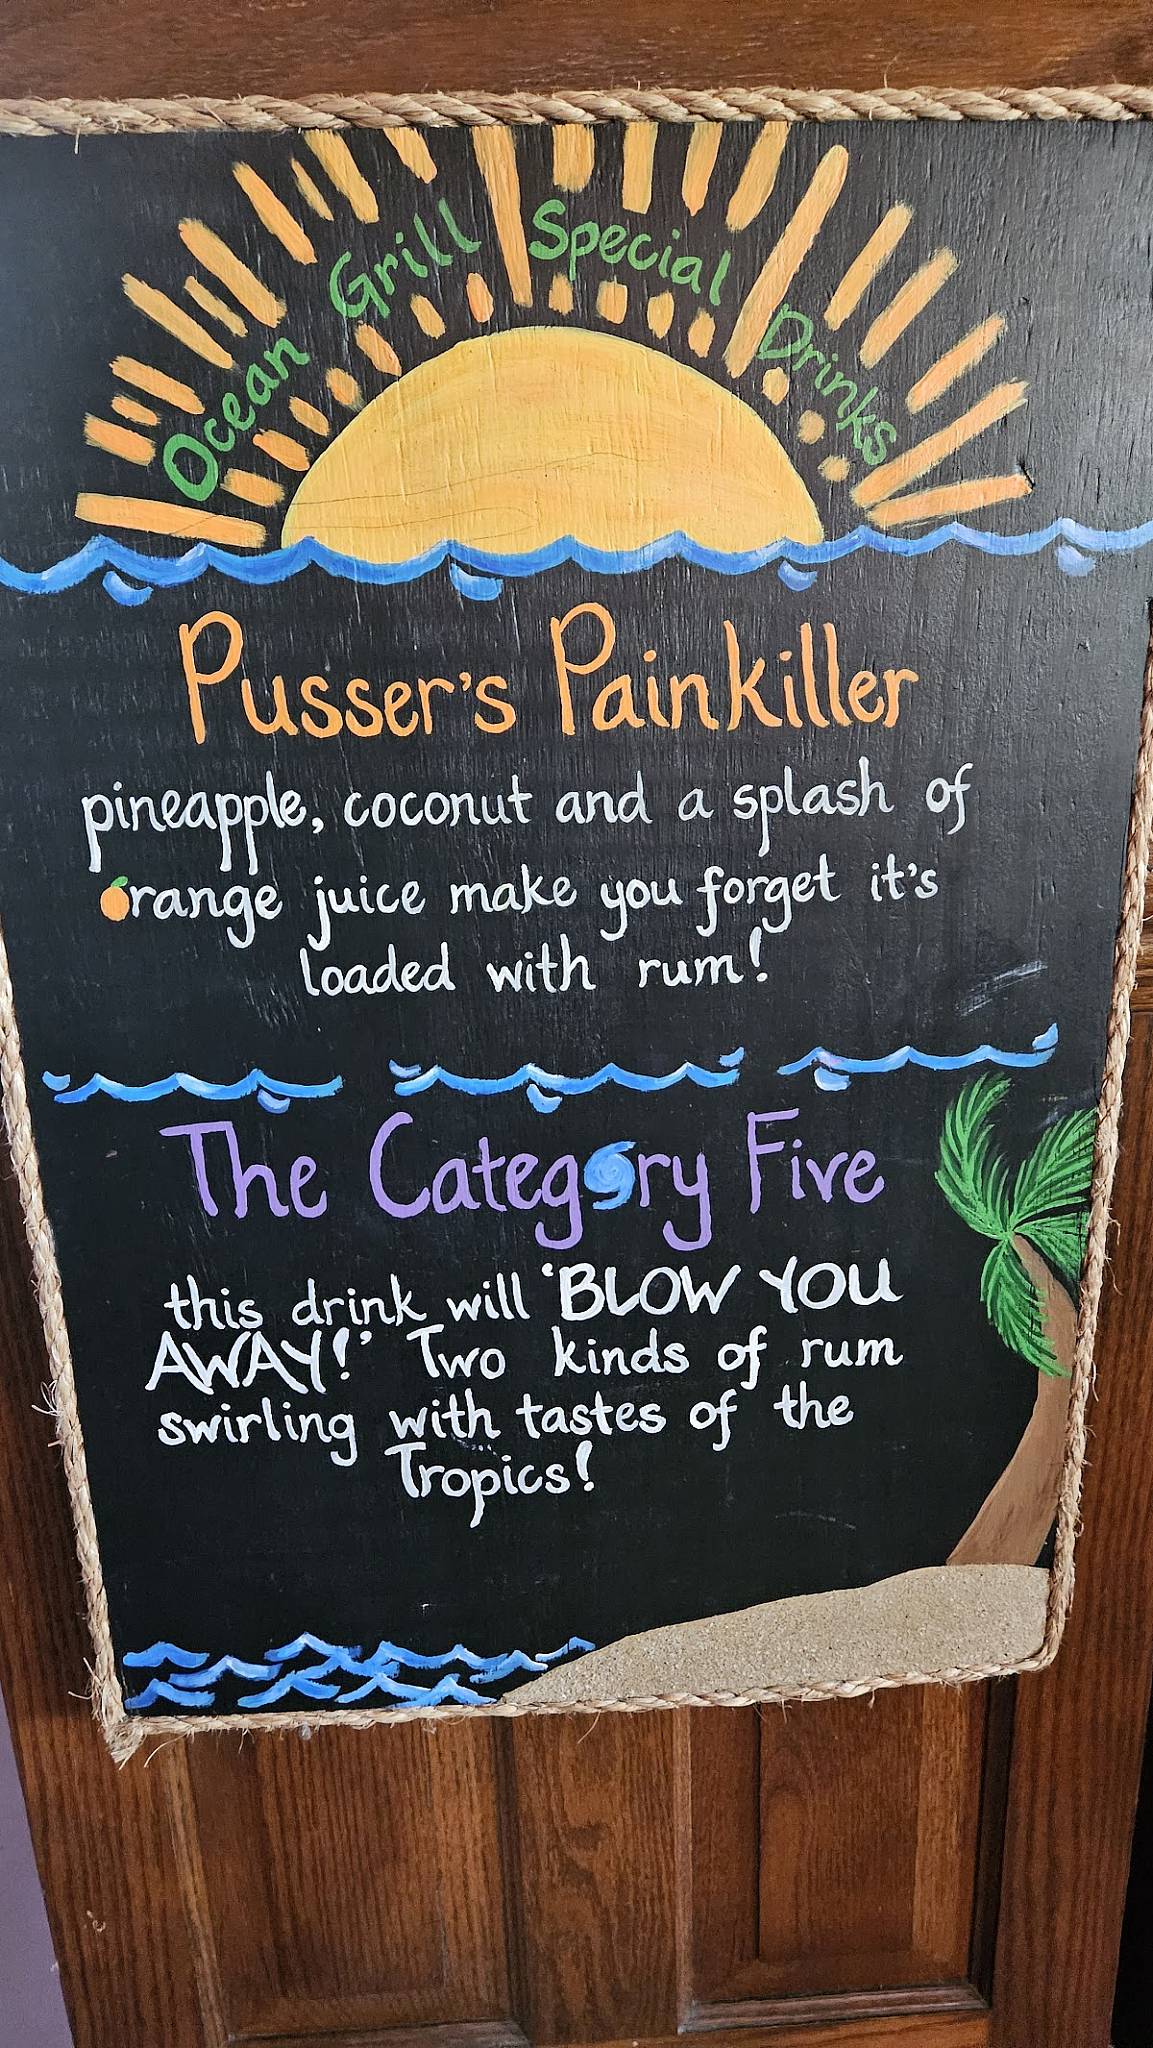 Ocean Grill Special Drinks
Pusser's Painkiller
pineapple, coconut and a splash of
orange juice make you forget it's
loaded with rum!
The Category Five
this drink will 'BLOW YOU
AWAY!' Two kinds of rum
swirling with tastes of the
Tropics!